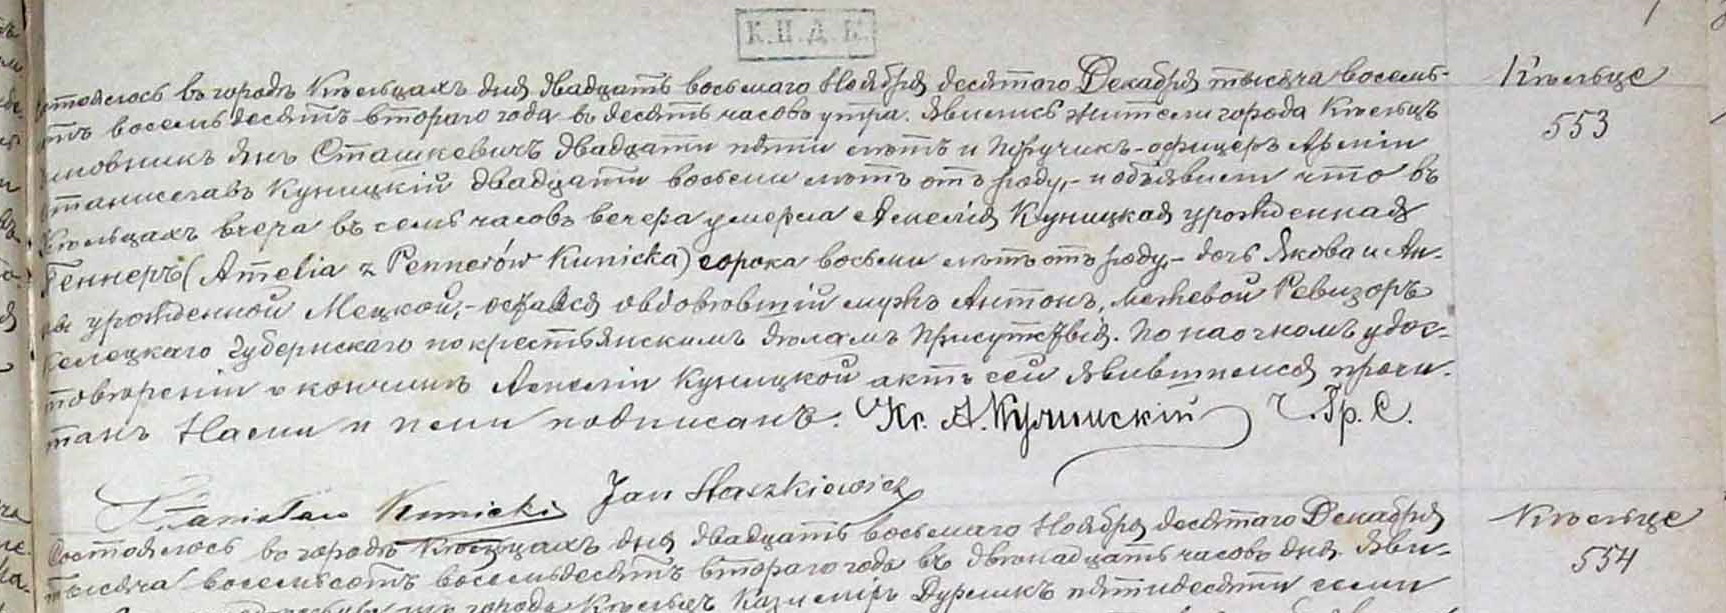 К.П.Д.К.
Состоялось въ городѣ Кѣльцахъ дня двадцать восьмаго Ноября десятаго Декабря тысяча восемь-
сотъ восемьдесятъ втораго года въ десять часовъ утра. Явились жители города Кѣльцъ
Чиновникъ Янъ Сташкевичъ двадцати пяти лѣтъ и Поручикъ-офицеръ Арміи
Станиславъ Куницкій двадцати восьми лѣтъ отъ роду,- и объявили что въ
Кѣльцахъ вчера въ семь часовъ вечера умерла Амелія Куницкая урожденная
Геннеръ (Amelia z Pennerów Kunicka) сорока восьми лѣтъ отъ роду,- дочь Якова и Ан-
ны урожденной Мецкой,- остался овдовѣвшій мужъ Антонъ, межевой Ревизоръ
Келецкаго Губернскаго по крестьянскимъ дѣламъ Присутствія. По наочномъ удос-
товѣреніи о кончинѣ Амеліи Куницкой актъ сей явившимся прочи-
танъ Нами и ими подписанъ. Кс. А. Ч.Гр.С.
Stanisław Kunicki Jan Staszkiewicz
Кѣльце
553
Состоялось въ городѣ Кѣльцахъ дня двадцать восьмаго Ноября десятаго Декабря
тысяча восемьсотъ восемьдесятъ втораго года въ двѣнадцать часовъ дня. Яви-
города Кѣльцъ Казиміръ пятидесяти семи
Кѣльце
554